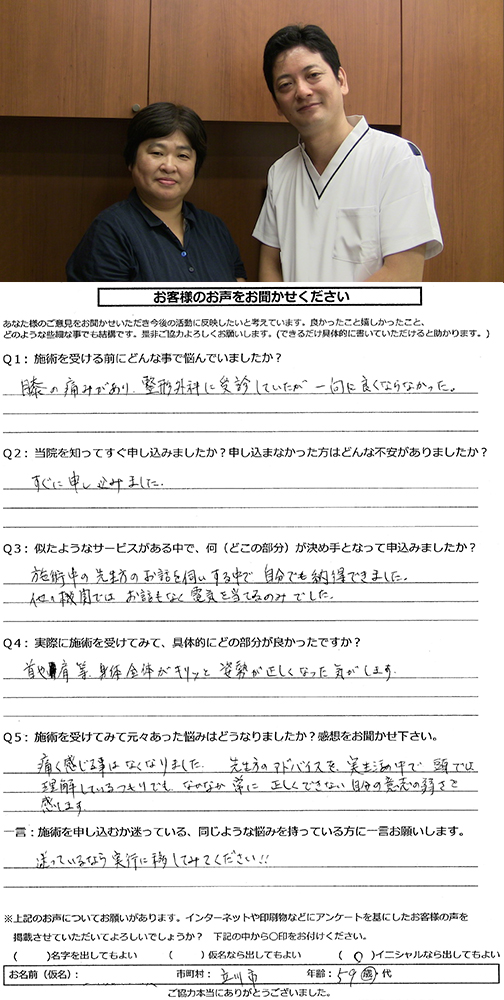 お客様のお声をお聞かせください
あなた様のご意見をお聞かせいただき今後の活動に反映したいと考えています。良かったこと嬉しかったこと、
どのような些細な事でも結構です。是非ご協力よろしくお願いします。(できるだけ具体的に書いていただけると助かります。)
Q1：施術を受ける前にどんな事で悩んでいましたか？
膝の痛みがあり、整形外科に受診していたが一向に良くならなかった。
Q2：当院を知ってすぐ申し込みましたか？申し込まなかった方はどんな不安がありましたか？
すぐに申し込みました。
Q3：似たようなサービスがある中で、何（どこの部分）が決め手となって申込みましたか？
施術中の先生方のお話を伺いする中で自分でも納得できました。
他の機関ではお話もなく電気を当てるのみでした。
Q4：実際に施術を受けてみて、具体的にどの部分が良かったですか？
首や肩等、身体全体がキリッと姿勢が正しくなった気がします。
Q5：施術を受けてみて元々あった悩みはどうなりましたか？感想をお聞かせ下さい。
痛く感じる事はなくなりました。先生方のアドバイスを、実生活の中で頭では
理解しているつもりでも、なかなか常に正しくできない自分の意志の弱さを
感じます。
一言：施術を申し込むか迷っている、同じような悩みを持っている方に一言お願いします。
迷っているなら実行に移してみてください!!
※上記のお声についてお願いがあります。インターネットや印刷物などにアンケートを基にしたお客様の声を
掲載させていただいてよろしいでしょうか？ 下記の中から〇印をお付けください。
( )名字を出してもよい ( )仮名なら出してもよい ( 〇 )イニシャルなら出してもよい
お名前（仮名）： 市町村： 立川市 年齢：59 歳・代
ご協力本当にありがとうございました。